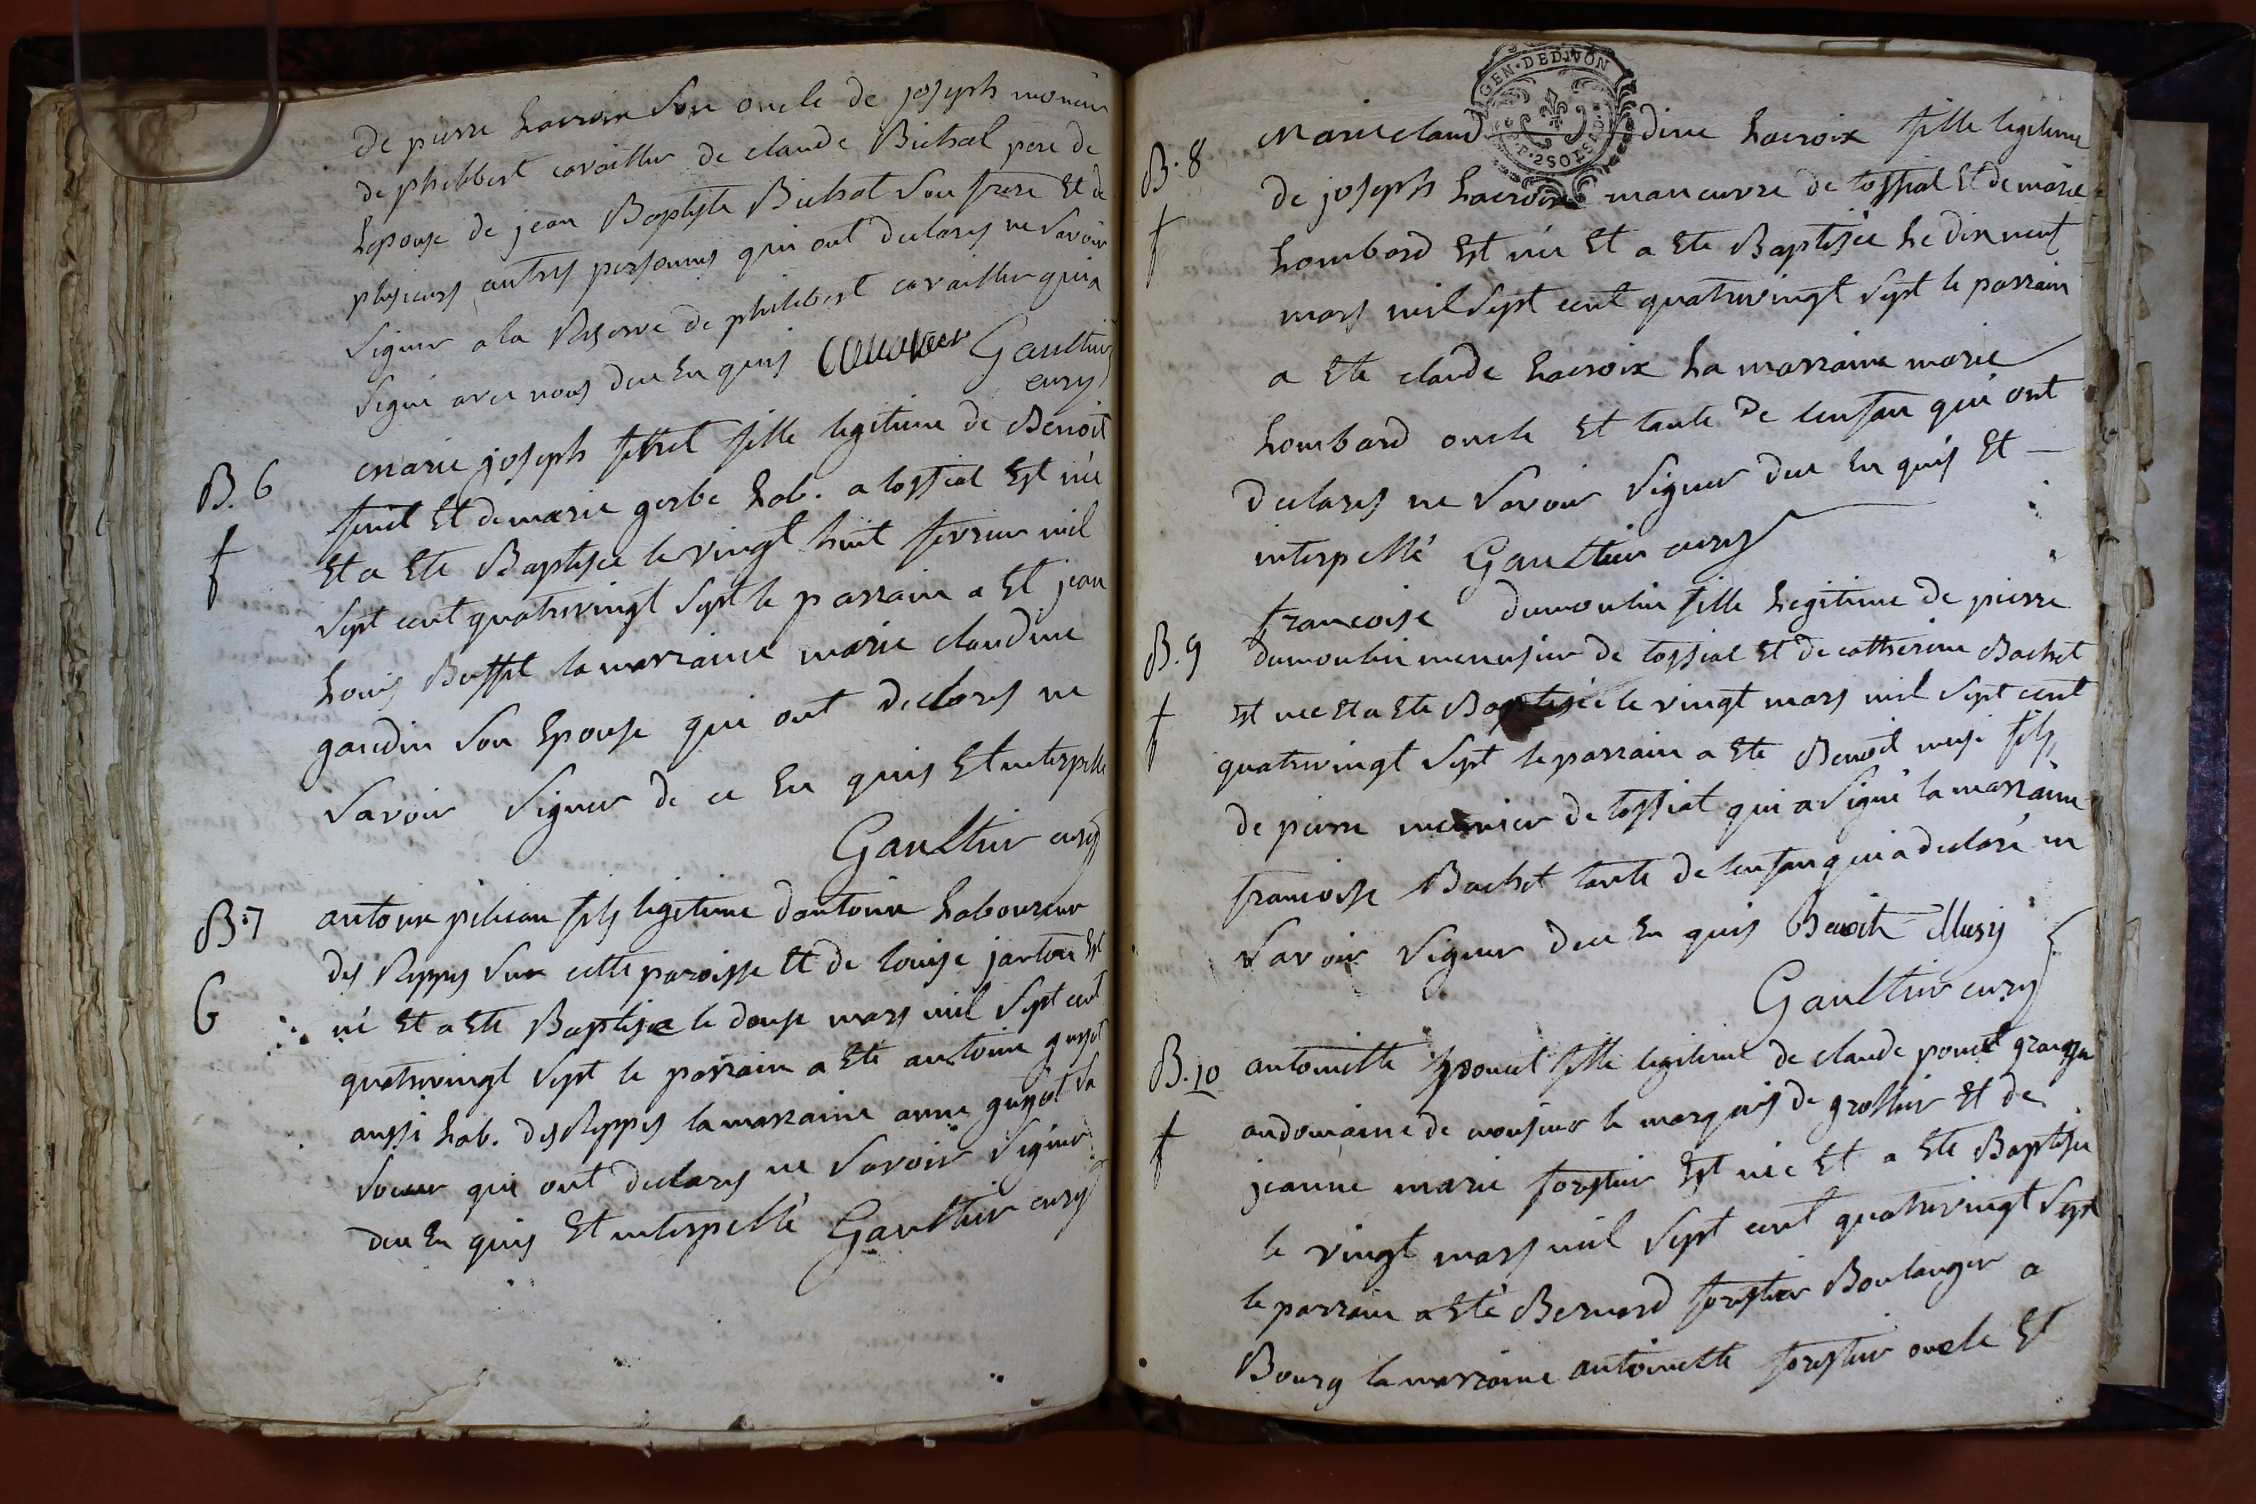 de pierre Lacroix son oncle de joseph monein
de philibert cavaillier de claude Bichat pere de
Lepouse de jean Baptiste Bichat son frere Et de
plusieurs autres personnes qui ont declarés ne savoir
signer a la Reserve de philibert cavaillier qui a
signé avec nous de ce En quis Gaultier
curé
B. 6
marie joseph fille legitime de Benoit
Et de marie gerbe hab. a tossiat Est née
f
Et a Ete Baptisée le vingt huit fevrier mil
sept cent quatrevingt sept le parrain a Et jean
Louis Buffet la marraine marie claudine
gaudin son Epouse qui ont declarés ne
savoir signer de ce En quis Et interpellé
Gaultier curé
B. 7
antoine pelican fils legitime dantoine Laboureur
des Reppes sur cette paroisse Et de Louise janton Est
G
né Et a Ete Baptisée le douse mars mil sept cent
quatrevingt sept le parrain a Ete antoine guyot
aussi hab. des Reppes la marraine anne guyot sa
soeur qui ont declarés ne savoir signer
de ce En quis Et interpellé Gaultier curé
GEN · DE DIJON
2 SOLS
B. 8
Marie claudine Lacroix fille legitime
de joseph Lacroix maneuvre de tossiat Et de marie
f
Lombard Est née Et a Ete Baptisée Le dixneuf
mars mil sept cent quatrevingt sept le parrain
a Ete claude Lacroix La marraine marie
Lombard oncle Et tante de lenfan qui ont
declarés ne savoir signer de ce En quis Et
interpellé Gaultier curé
francoise dumoulin fille Legitime de pierre
B. 9
dumoulin menusier de tossiat Et de catherine Bachet
f
Est née Et a Ete Baptisée le vingt mars mil sept cent
quatrevingt sept le parrain a Ete Benoit musi fils
de pierre meunier de tossiat qui a signé la marraine
francoise Bachet tante de lenfan qui a declaré ne
savoir signer de ce En quis Benoit Musy
Gaultier curé
B. 10
antoinette poncet fille legitime de claude poncet granger
f
au domaine de monsieur le marquis de grollier Et de
jeanne marie forestier Est née Et a Ete Baptisée
le vingt mars mil sept cent quatrevingt sept
le parrain a Eté Bernard forestier Boulanger a
Bourg la marraine antoinette forestier oncle Et